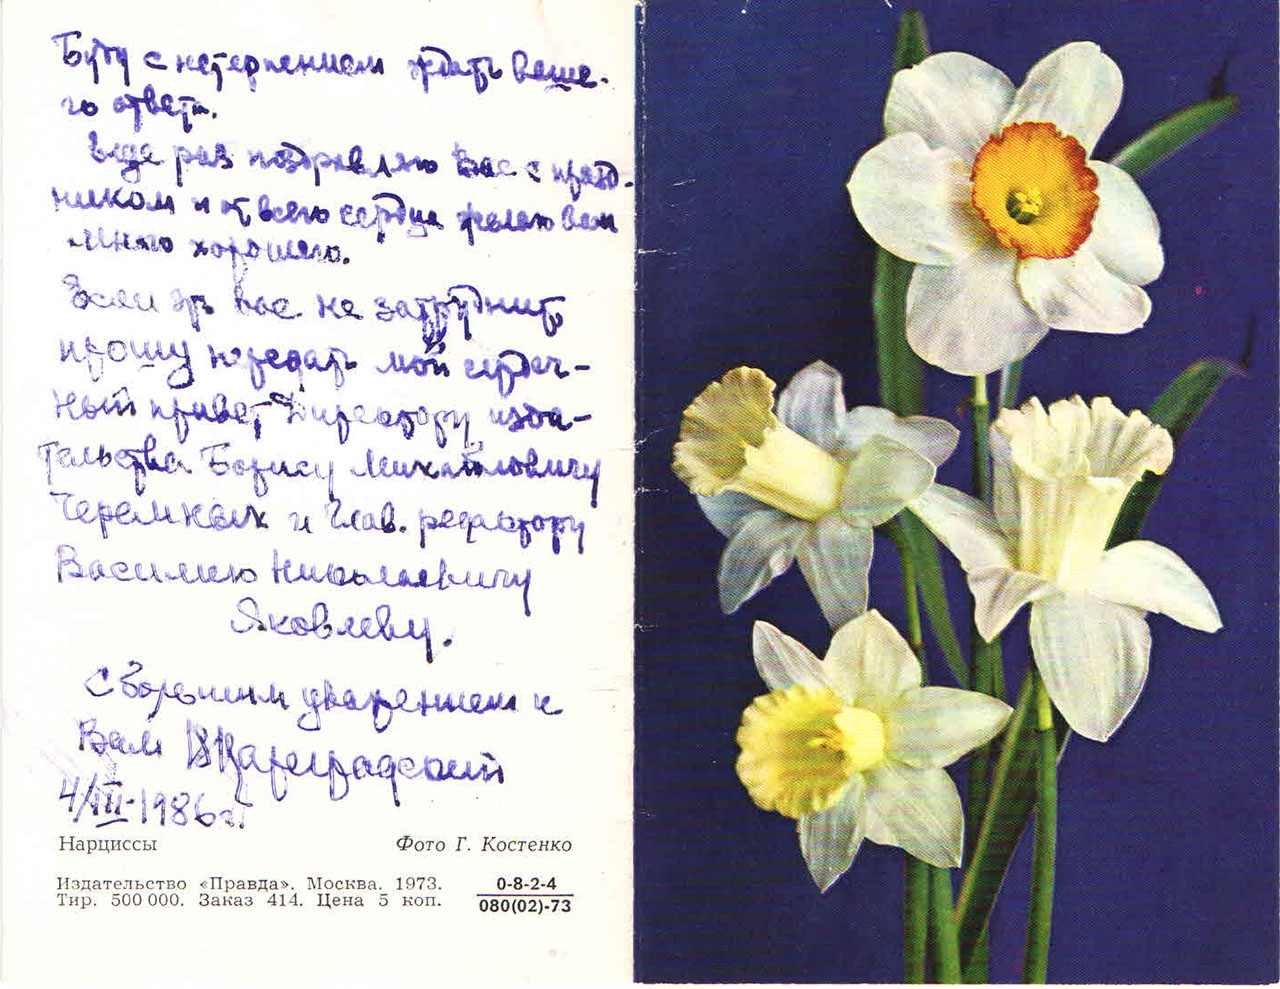 Буду с нетерпением ждать ваше-
го ответа.
Еще раз поздравляю Вас с празд-
ником и от всего сердца желаю вам
много хорошего.
Если Вас не затруднит
прошу передать мой сердеч-
ный привет Директору изда-
тельства Борису Михайловичу
Черемных и Глав. редактору
Василию Николаевичу
Яковлеву.
С большим уважением к
Вам
4/III-1986 г.
Нарциссы
Фото Г. Костенко
Издательство «Правда». Москва. 1973.
Тир. 500 000. Заказ 414. Цена 5 коп.
0-8-2-4
080(02)-73